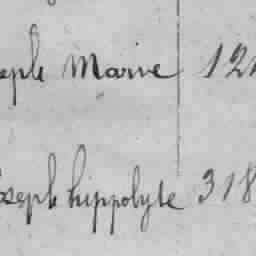 eph Marie 12
oseph hippolyte 318